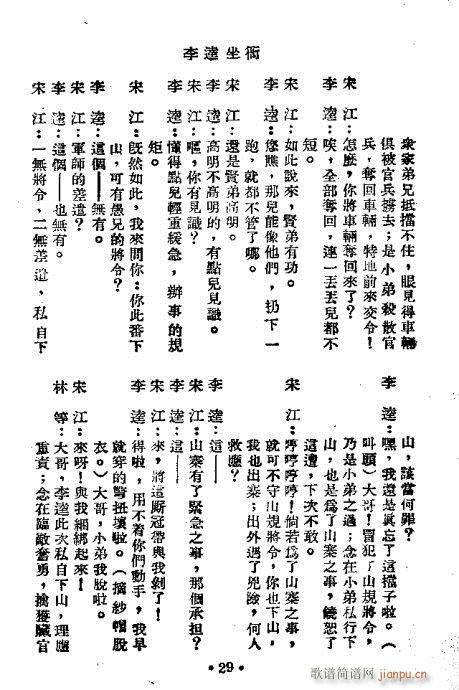 李逵坐衙
衆家弟兄抵擋不住，眼見得車輛
俱被官兵擄去；是小弟殺散官
兵，奪回車輛，特地前來交令！
宋　江：怎麽，你將車輛奪回來了？
李　逵：唉，全部奪回，連一丟丟兒都不
短。
宋　江：如此說來，賢弟有功。
李　逵：您瞧，那兒能像他們，扔下一
跑，就都不管了哪。
宋　江：還是賢弟高明。
李　逵：高明不高明的，有點兒見識。
宋　江：喔，你有見識？
李　逵：懂得點兒輕重緩急，辦事的規
矩。
宋　江：旣然如此，我來問你：你此番下
山，可有愚兄的將令？
李　逵：這個——無有。
宋　江：軍師的差遣？
李　逵：這個——也無有。
宋　江：一無將令，二無差遣，私自下
山，該當何罪？
李　逵：嘿，我還是眞忘了這擋子啦。（
叫頭）大哥！冒犯了山規將令，
乃是小弟之過；念在小弟私行下
山，也是爲了山寨之事，饒恕了
這遭，下次不敢。
宋　江：哼哼哼哼！倘若爲了山寨之事，
就可不守山規將令，你也下山，
我也出寨；出外遇了兇險，何人
救應？
李　逵：這——
宋　江：山寨有了緊急之事，那個承担？
李　逵：這——
宋　江：來，將這厮冠帶與我剝了！
李　逵：得啦，用不着你們動手，我早
就穿的彆扭壞啦。（摘紗帽脫
衣。）大哥，小弟我脫啦。
宋　江：來呀！與我綑綁起來！
林　等：大哥，李逵此次私自下山，理應
重責；念在臨敵奮勇，擒獲贓官
·29·
歌谱简谱网
jianpu.cn